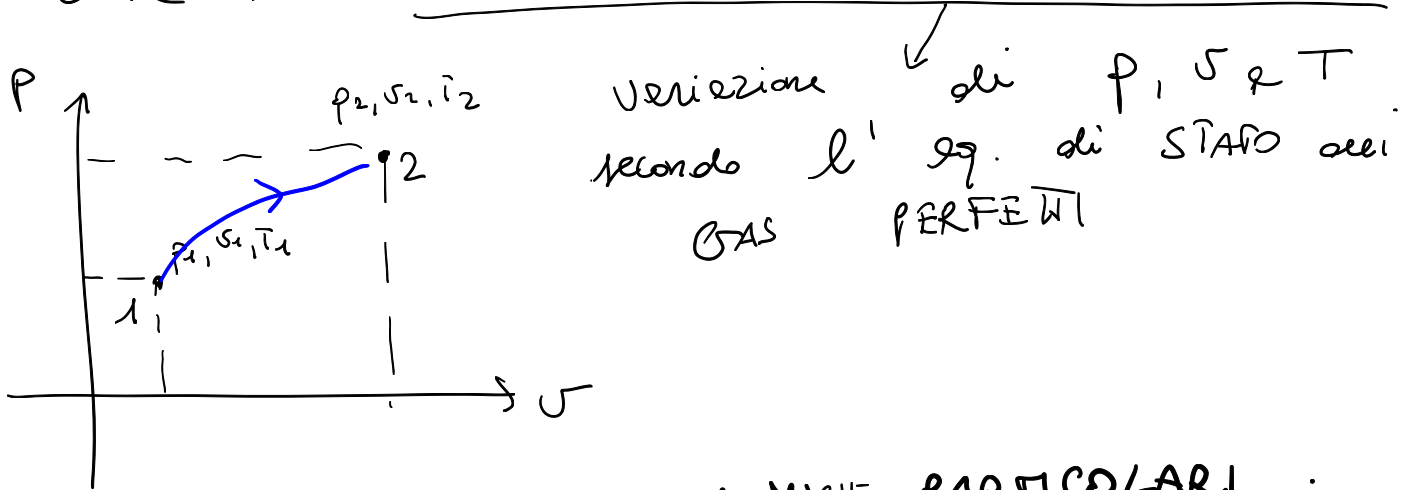 P
p2, v2, T2
2
p1, v1, T1
1
v
variazione di p, v e T
secondo l' eq. di STATO dei
GAS PERFETTI
PARTICOLARI :